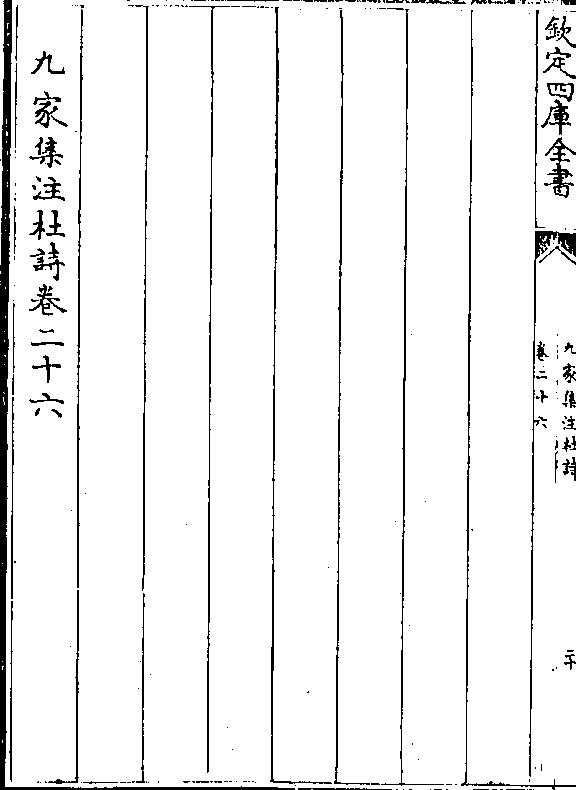 欽定四庫全書
九家集注杜詩
卷二十六
二十
九家集注杜詩卷二十六